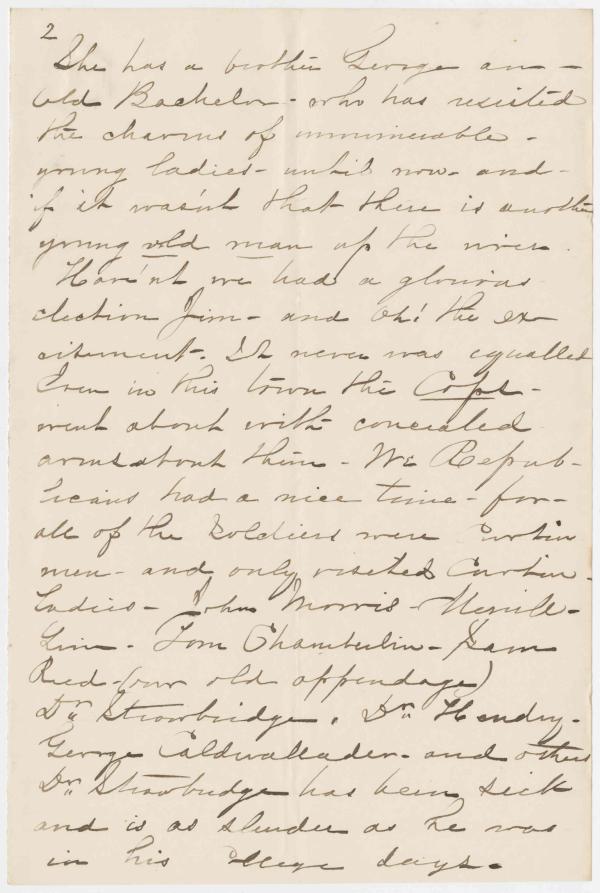 2
She has a brother George an -
old Bachelor - who has resisted
the charms of innumerable -
young ladies - until now - and -
if it wasn't that there is another
young old man up the river.
Hav'nt we had a glorious
election Jim - and Oh! the ex-
citement. It never was equalled
Even in this town the Cops -
went about with concealed
arms about them - We Repub-
licans had a nice time - for -
all of the Soldiers were Curtin
men - and only visited Curtin -
Ladies - John Morris - Merrill -
Linn - Tom Chamberlin - Sam
Reed - (our old appendage)
Dr. Strawbridge, Dr. Hendry -
George Caldwallader - and others
Dr. Strawbridge has been sick
and is as slender as he was
in his College days.